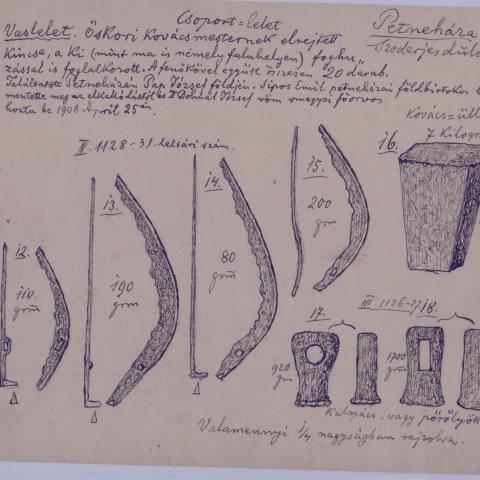 Csoport=lelet
Petneháza
Szederjes dűlő
Vaslelet. Őskori kovácsmesternek elrejtett
kincse, a ki (mint ma is némely faluhelyen) foghu-
zással is foglalkozott. A fenőkővel együtt összesen 20 darab.
Találtatott Petneházán Pap József földjén. Sipos Emil petneházai földbirtokos
mentette meg az elkallódástól és Dr József vöm megyei főorvos
hozta be 1908 April 25én.
Kovács=üll
7 Kilogra
16.
III. 1128-31. leltári szám.
12.
110.
gram
13.
190
gram
14.
80
gram
15.
200
grm
17.
III. 1126-27
18.
920
grm
1700
gram
Kalapács, vagy pörölyök
Valamennyi 1/4 nagyságban rajzolva.